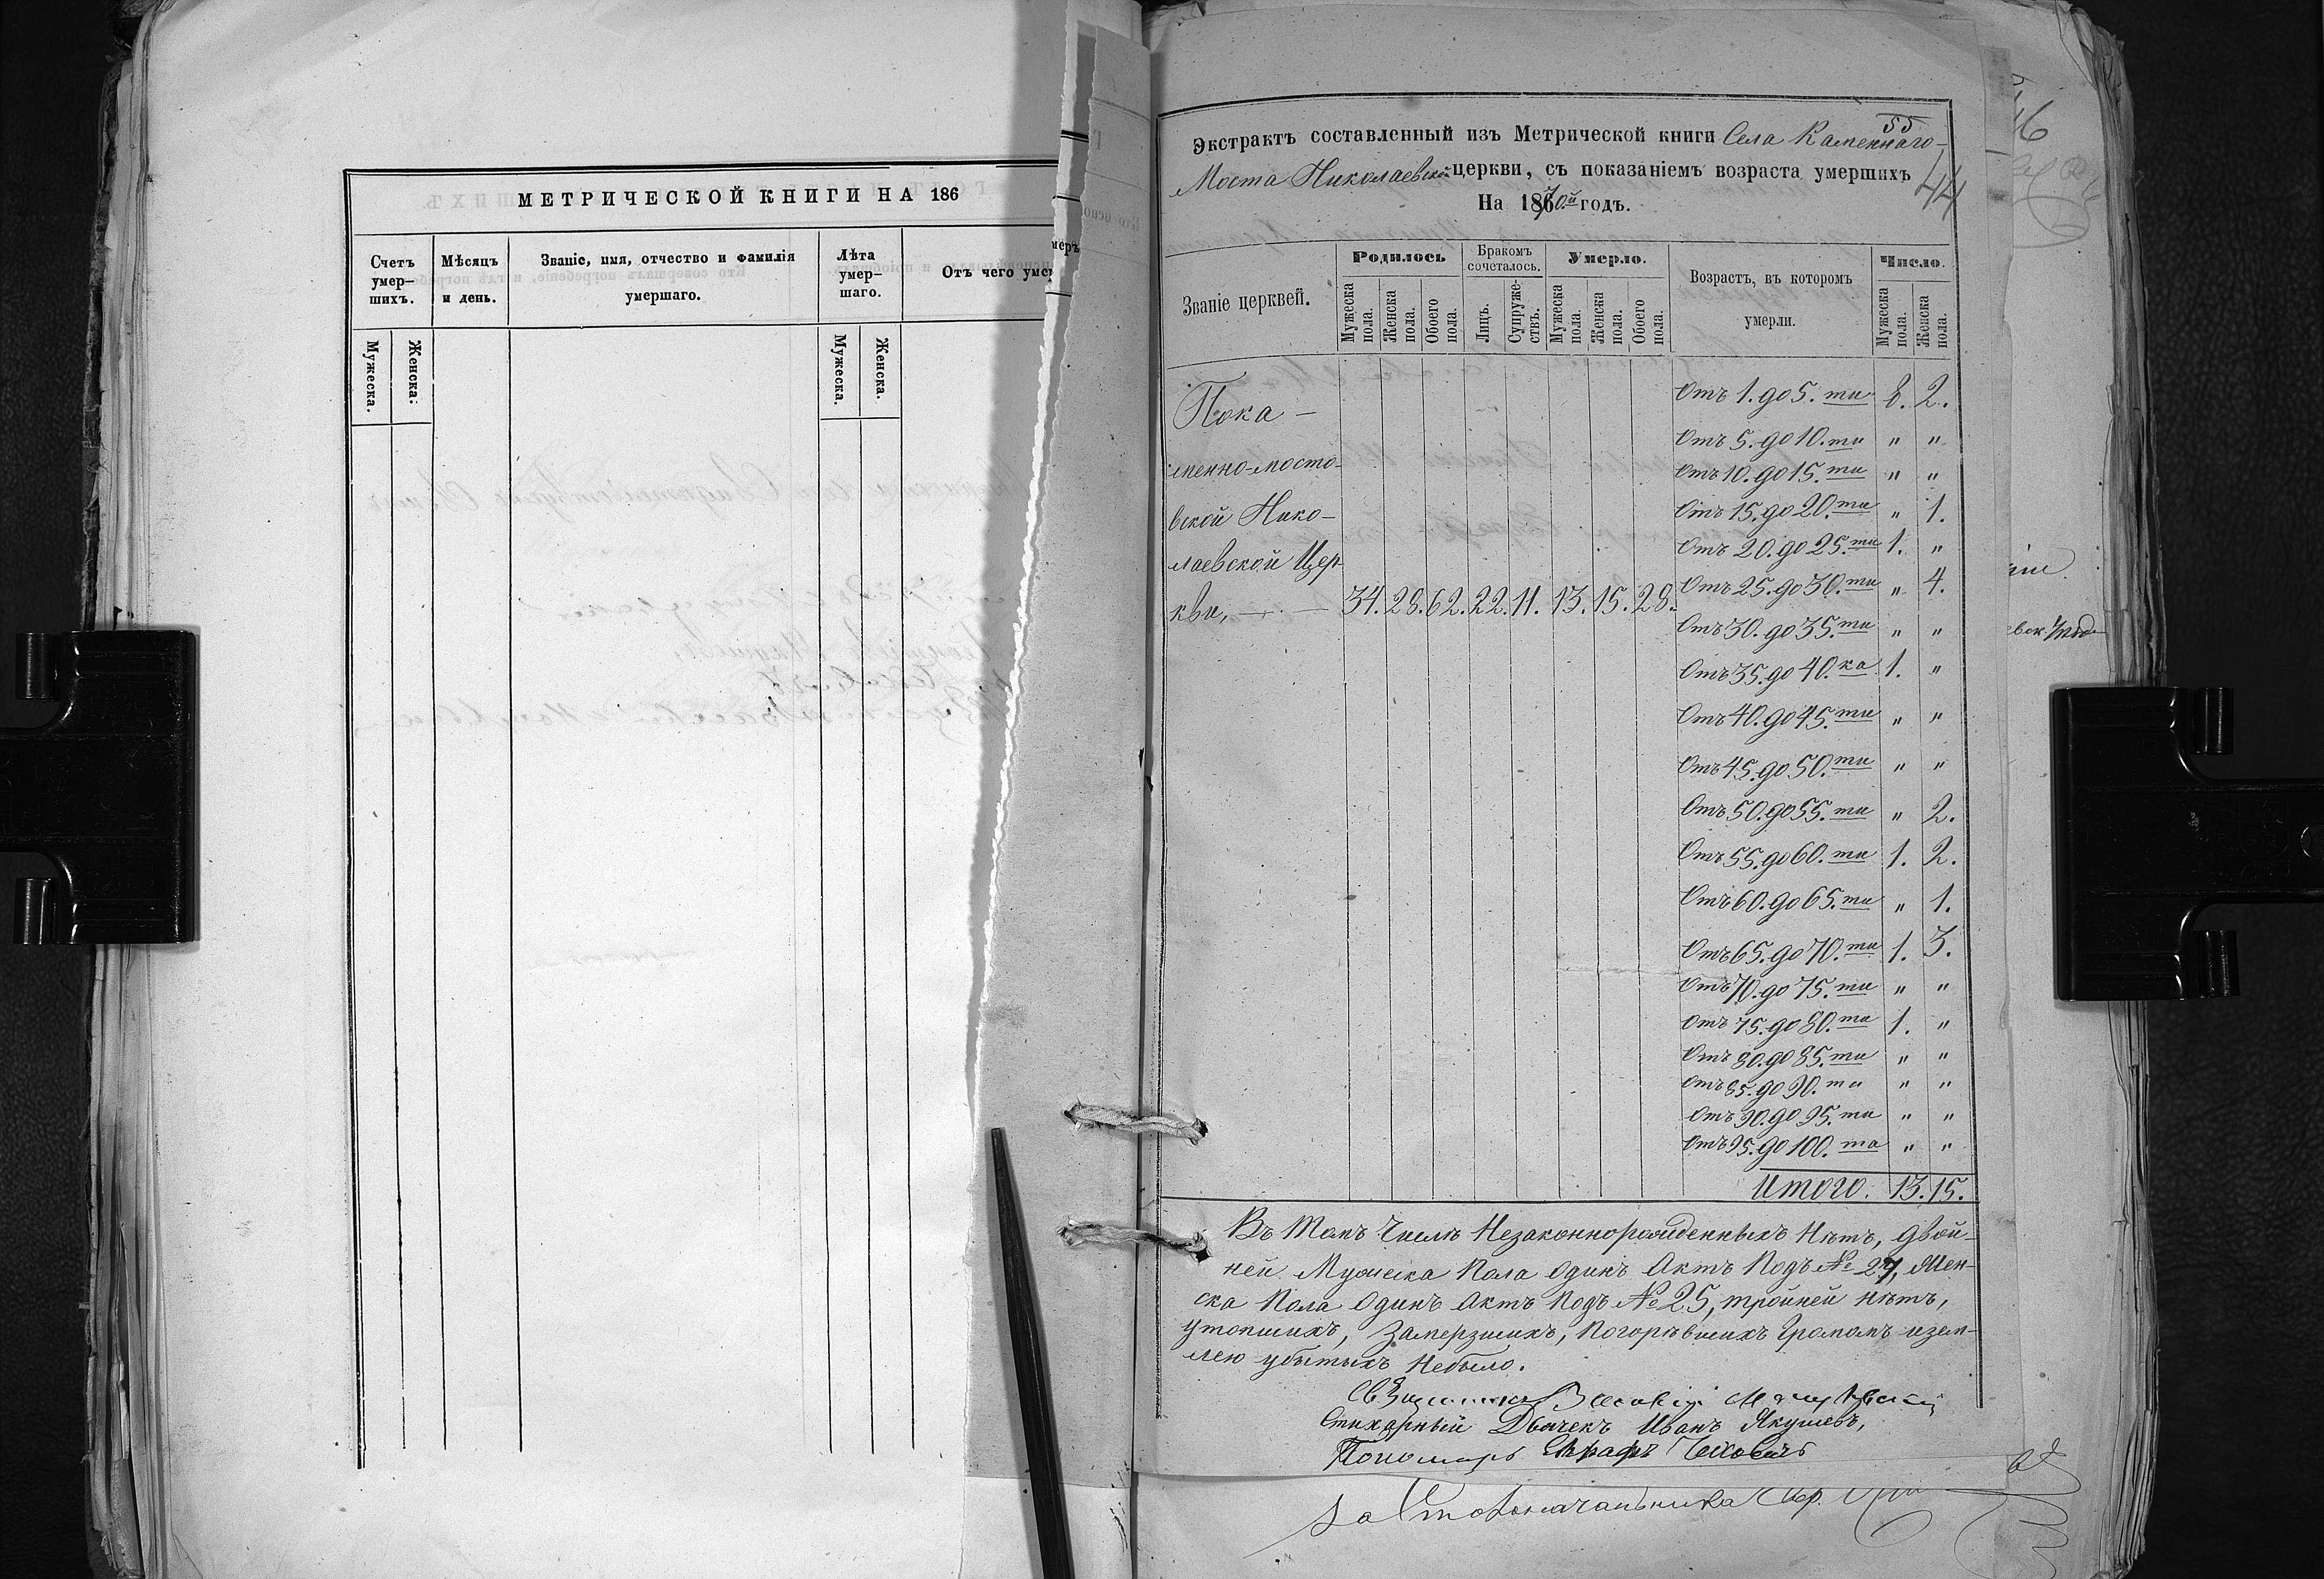 МЕТРИЧЕСКОЙ КНИГИ НА 186
Счетъ умер-шихъ.
Мужеска.
Женска:
Мѣсяцъ и день.
Званіе, имя, отчество и фамилія умершаго.
Лѣта умер-шаго.
Мужеска.
Женска.
Отъ чего умер
55
44
Экстрактъ составленный изъ Метрической книги Села Каменнаго-
Моста Николаевской церкви, съ показаніемъ возраста умершихъ
На 1870.й годъ.
Званіе церквей.
Родилось
Мужеска пола.
Женска пола.
Обоего пола.
Бракомъ сочеталось.
Лицъ.
Супруже-ствъ.
Умерло.
Мужеска пола.
Женска пола.
Обоего пола.
Возрастъ, въ которомъ умерли.
Число.
Мужеска пола.
Женска пола.
Пока-
менно-мосто-
вской Нико-
лаевской Цер-
кви, 34. 28. 62. 22. 11. 13. 15. 28.
Отъ 1. до 5. ти 8. 2.
Отъ 5. до 10. ти " "
Отъ 10. до 15. ти " "
Отъ 15. до 20. ти " 1.
Отъ 20. до 25. ти 1. "
Отъ 25. до 30. ти " 4.
Отъ 30. до 35. ти " "
Отъ 35. до 40. ка 1. "
Отъ 40. до 45. ти " "
Отъ 45. до 50. ти " "
Отъ 50. до 55. ти " 2.
Отъ 55. до 60. ти 1. 2.
Отъ 60. до 65. ти " 1.
Отъ 65. до 70. ти 1. 3.
Отъ 70. до 75. ти " "
Отъ 75. до 80. ти 1. "
Отъ 80. до 85. ти " "
Отъ 85. до 90. ти " "
Отъ 90. до 95. ти " "
Отъ 95. до 100. та " "
Итого. 13. 15.
Въ томъ числѣ Незаконнорожденныхъ Нѣтъ, двой-
ней Мужеска Пола Одинъ Актъ Подъ № 27, Жен-
ска Пола Одинъ Актъ Подъ № 25, тройней нѣтъ,
утопшихъ, Замерзшихъ, Погорѣвшихъ Громомъ изем-
лею убитыхъ Небыло.
Священникъ Василій
Стихарный Дьячекъ Иванъ Якушевъ,
Пономарь Чеховичъ
За Столоначальника